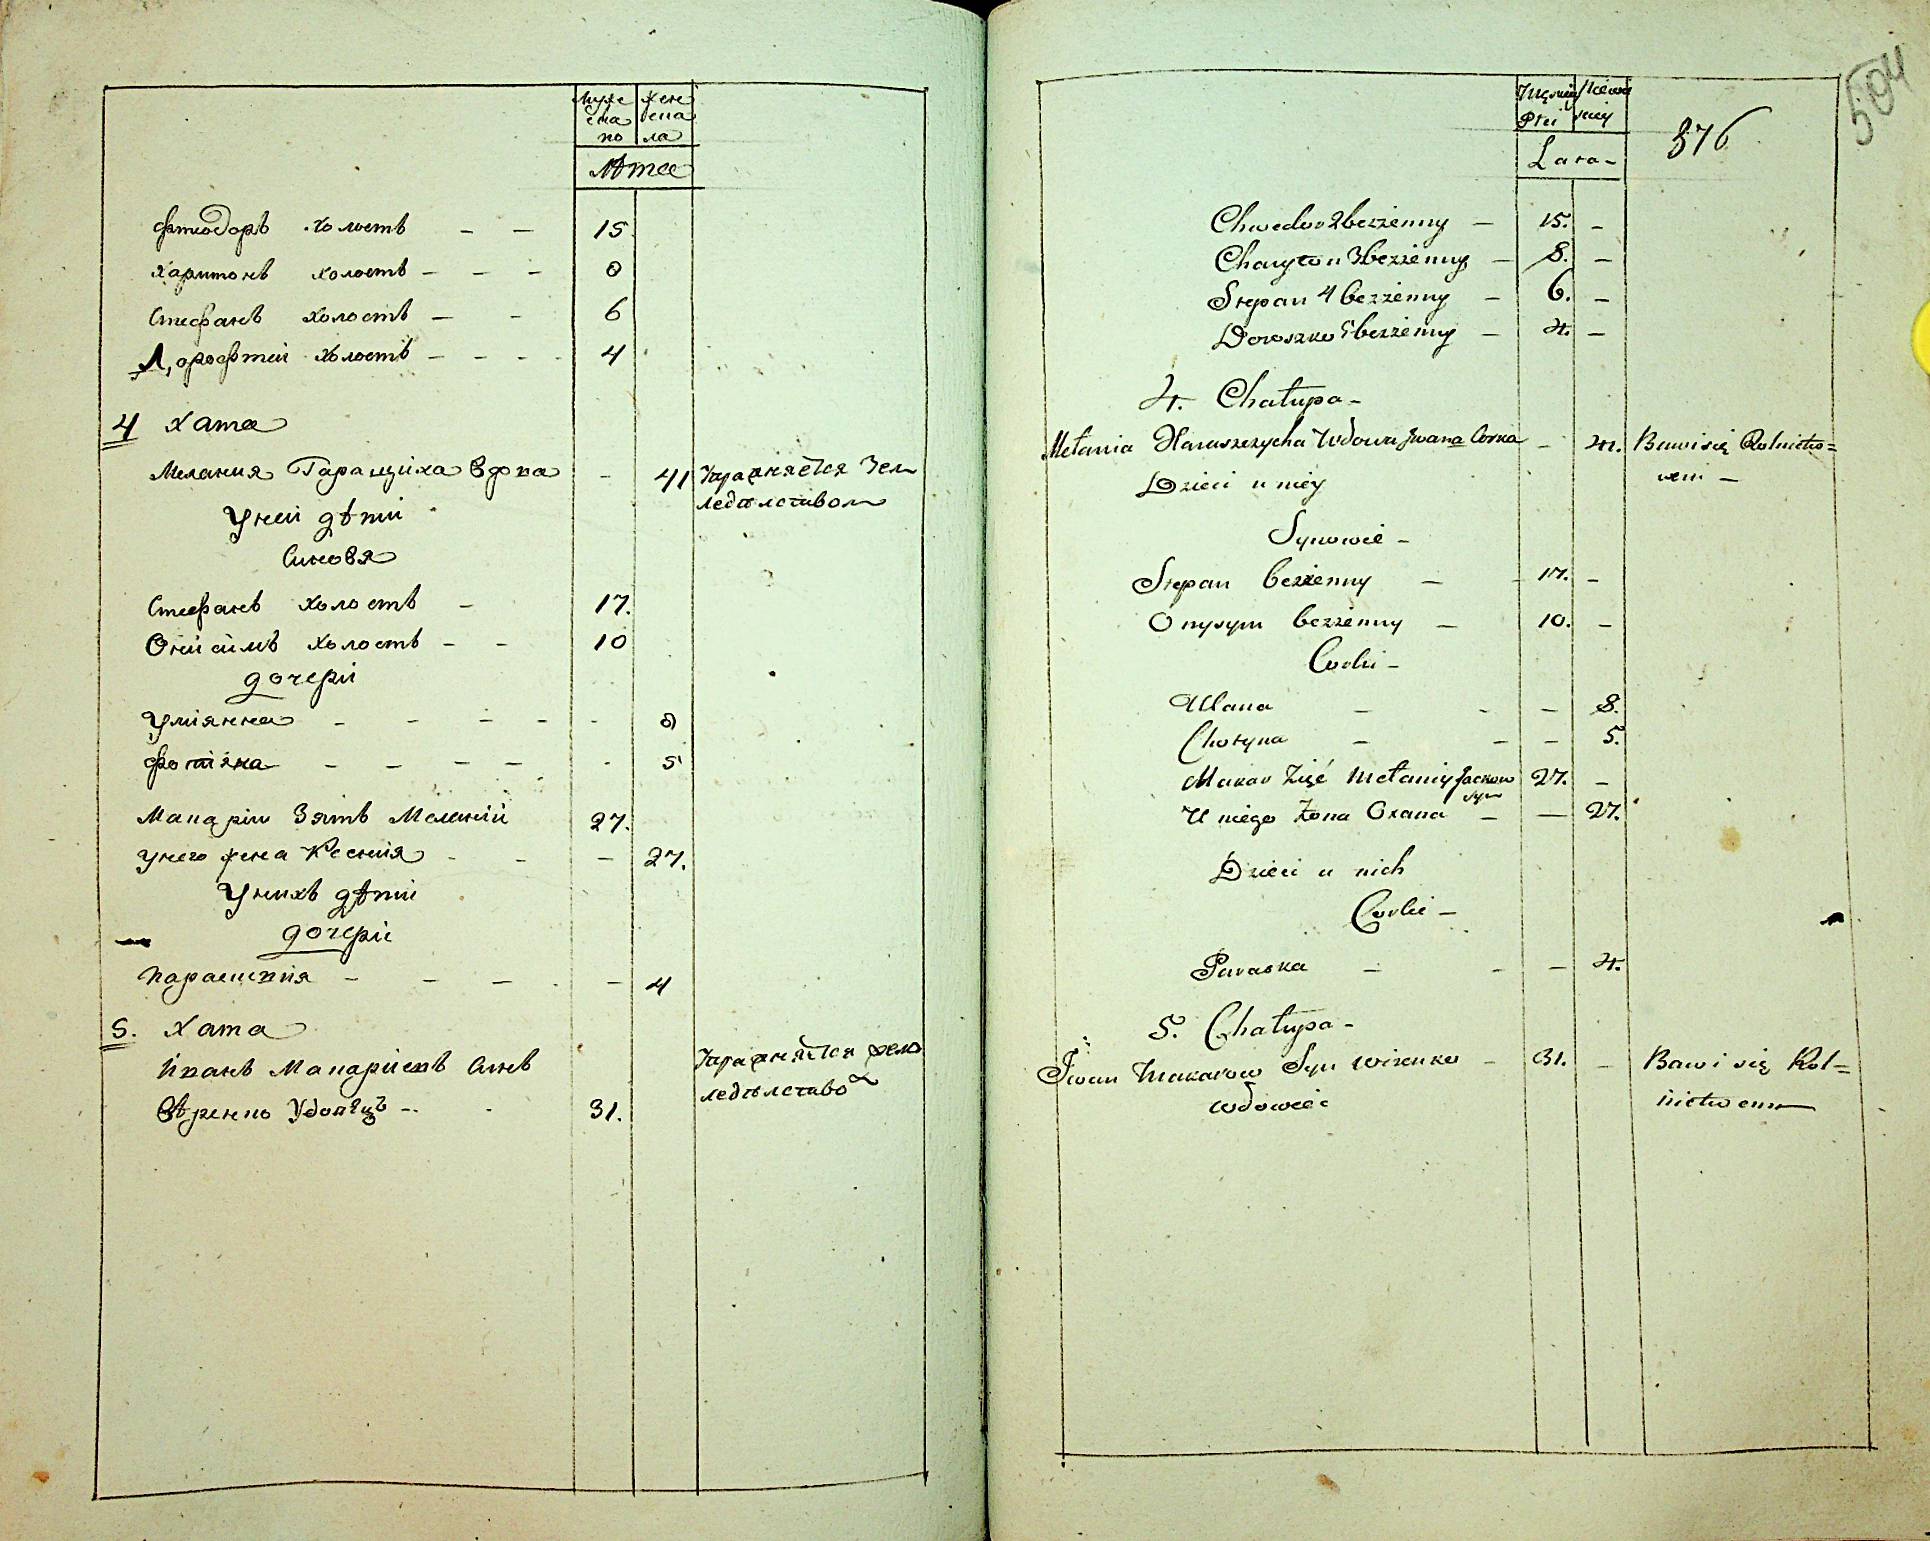 Муже Жене
ска ска
по ла
Лѣта
Фтеодоръ холостъ — — 15
Харитонъ холостъ — — — 8
Стефанъ холостъ — — 6
Дорофтей холостъ — — — 4
4 Хата
Мелания Гаращиха вдова — 41 Упражняется Зем
Уней дѣти ледѣлством
Синовя
Стефанъ холостъ — 17.
Онисимъ холостъ — — 10
дочери
Улиянна — — — — — 8
Фотiяна — — — — — 5
Макарiи Зятъ Меланiи 27.
Унего жена Ксения — — — 27.
Унихъ дѣти
дочери
Параскивiя — — — — — 4
5. Хата
Иванъ Макариевъ Синъ Упражняется Земле
Вѣренко Удовецъ — 31. ледѣлство
504
Męzkiey Żeńs
Płci kiey
Lata — 376
Chwedor 2 bezżenny — 15. —
Charyton 3 bezżenny — 8. —
Stepan 4 bezżenny — 6. —
Doroszko 5 bezżenny — 4. —
4. Chałupa —
Mełania Haraszczycha Wdowa Jwana Corka — 41. Bawi się Rolnictw=
Dzieci u niey wem —
Synowie —
Stepan bezżenny — 17. —
Onysym bezżenny — 10. —
Corki —
Ulana — — — 8.
Chotyna — — — 5.
Makar Zięć Mełanii Jackow 27. —
syn
U niego Żona Oxana — — 27.
Dzieci u nich
Corki —
Paraska — — — 4.
5. Chałupa —
Jwan Makarow Syn Wirenko — 31. — Bawi się Rol=
wdowiec nictwem